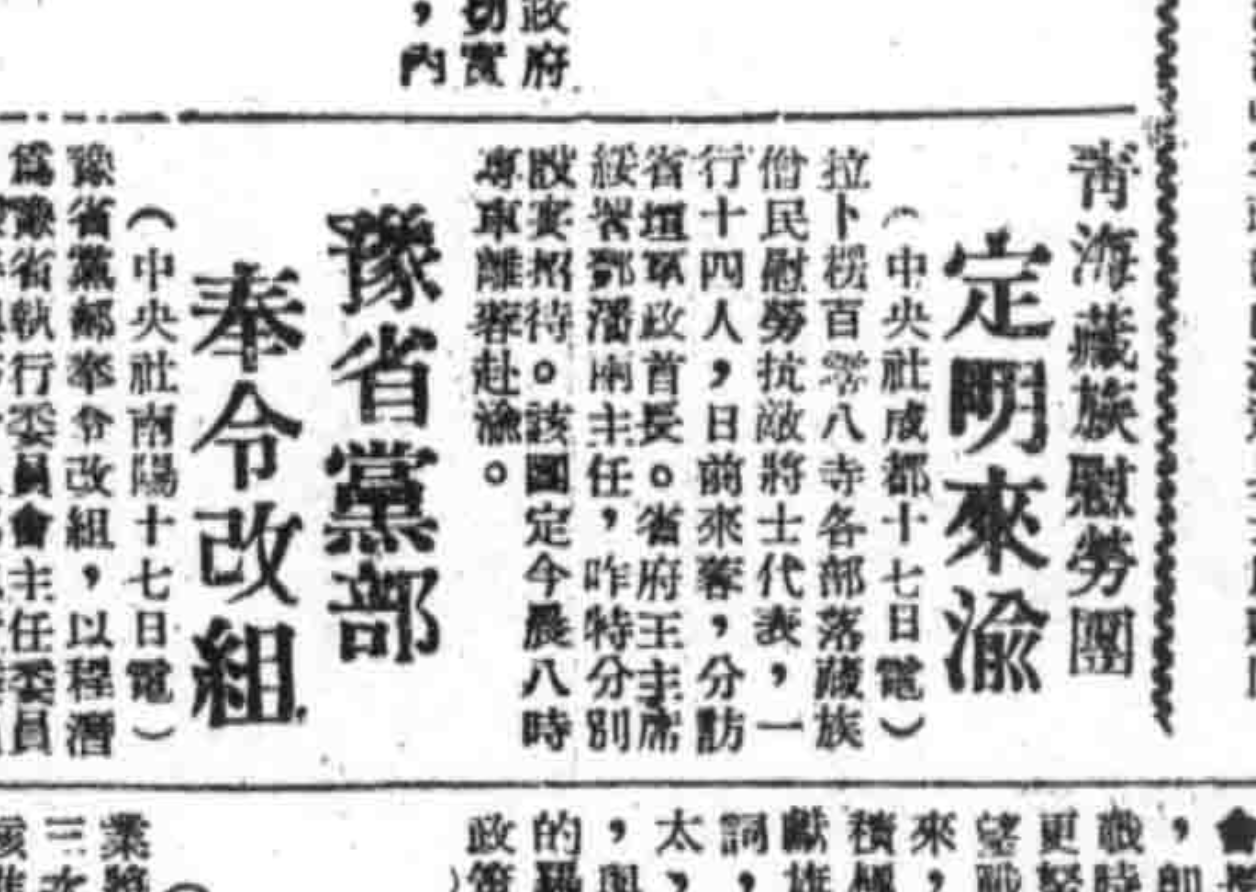 政府
切實
，內
青海藏族慰勞團
定明來渝
（中央社成都十七日電）
拉卜楞百零八寺各部落藏族
僧民慰勞抗敵將士代表，一
行十四人，日前來蓉，分訪
省垣軍政首長。省府王主席
綏署鄧潘兩主任，昨特分別
設宴招待。該團定今晨八時
專車離蓉赴渝。
豫省黨部
奉令改組
（中央社南陽十七日電）
豫省黨部奉令改組，以程潛
爲豫省執行委員會主任委員
會
，
戰時
更
望
來，
積極
獻旗
詞，
太，
，與
的
政
業
三